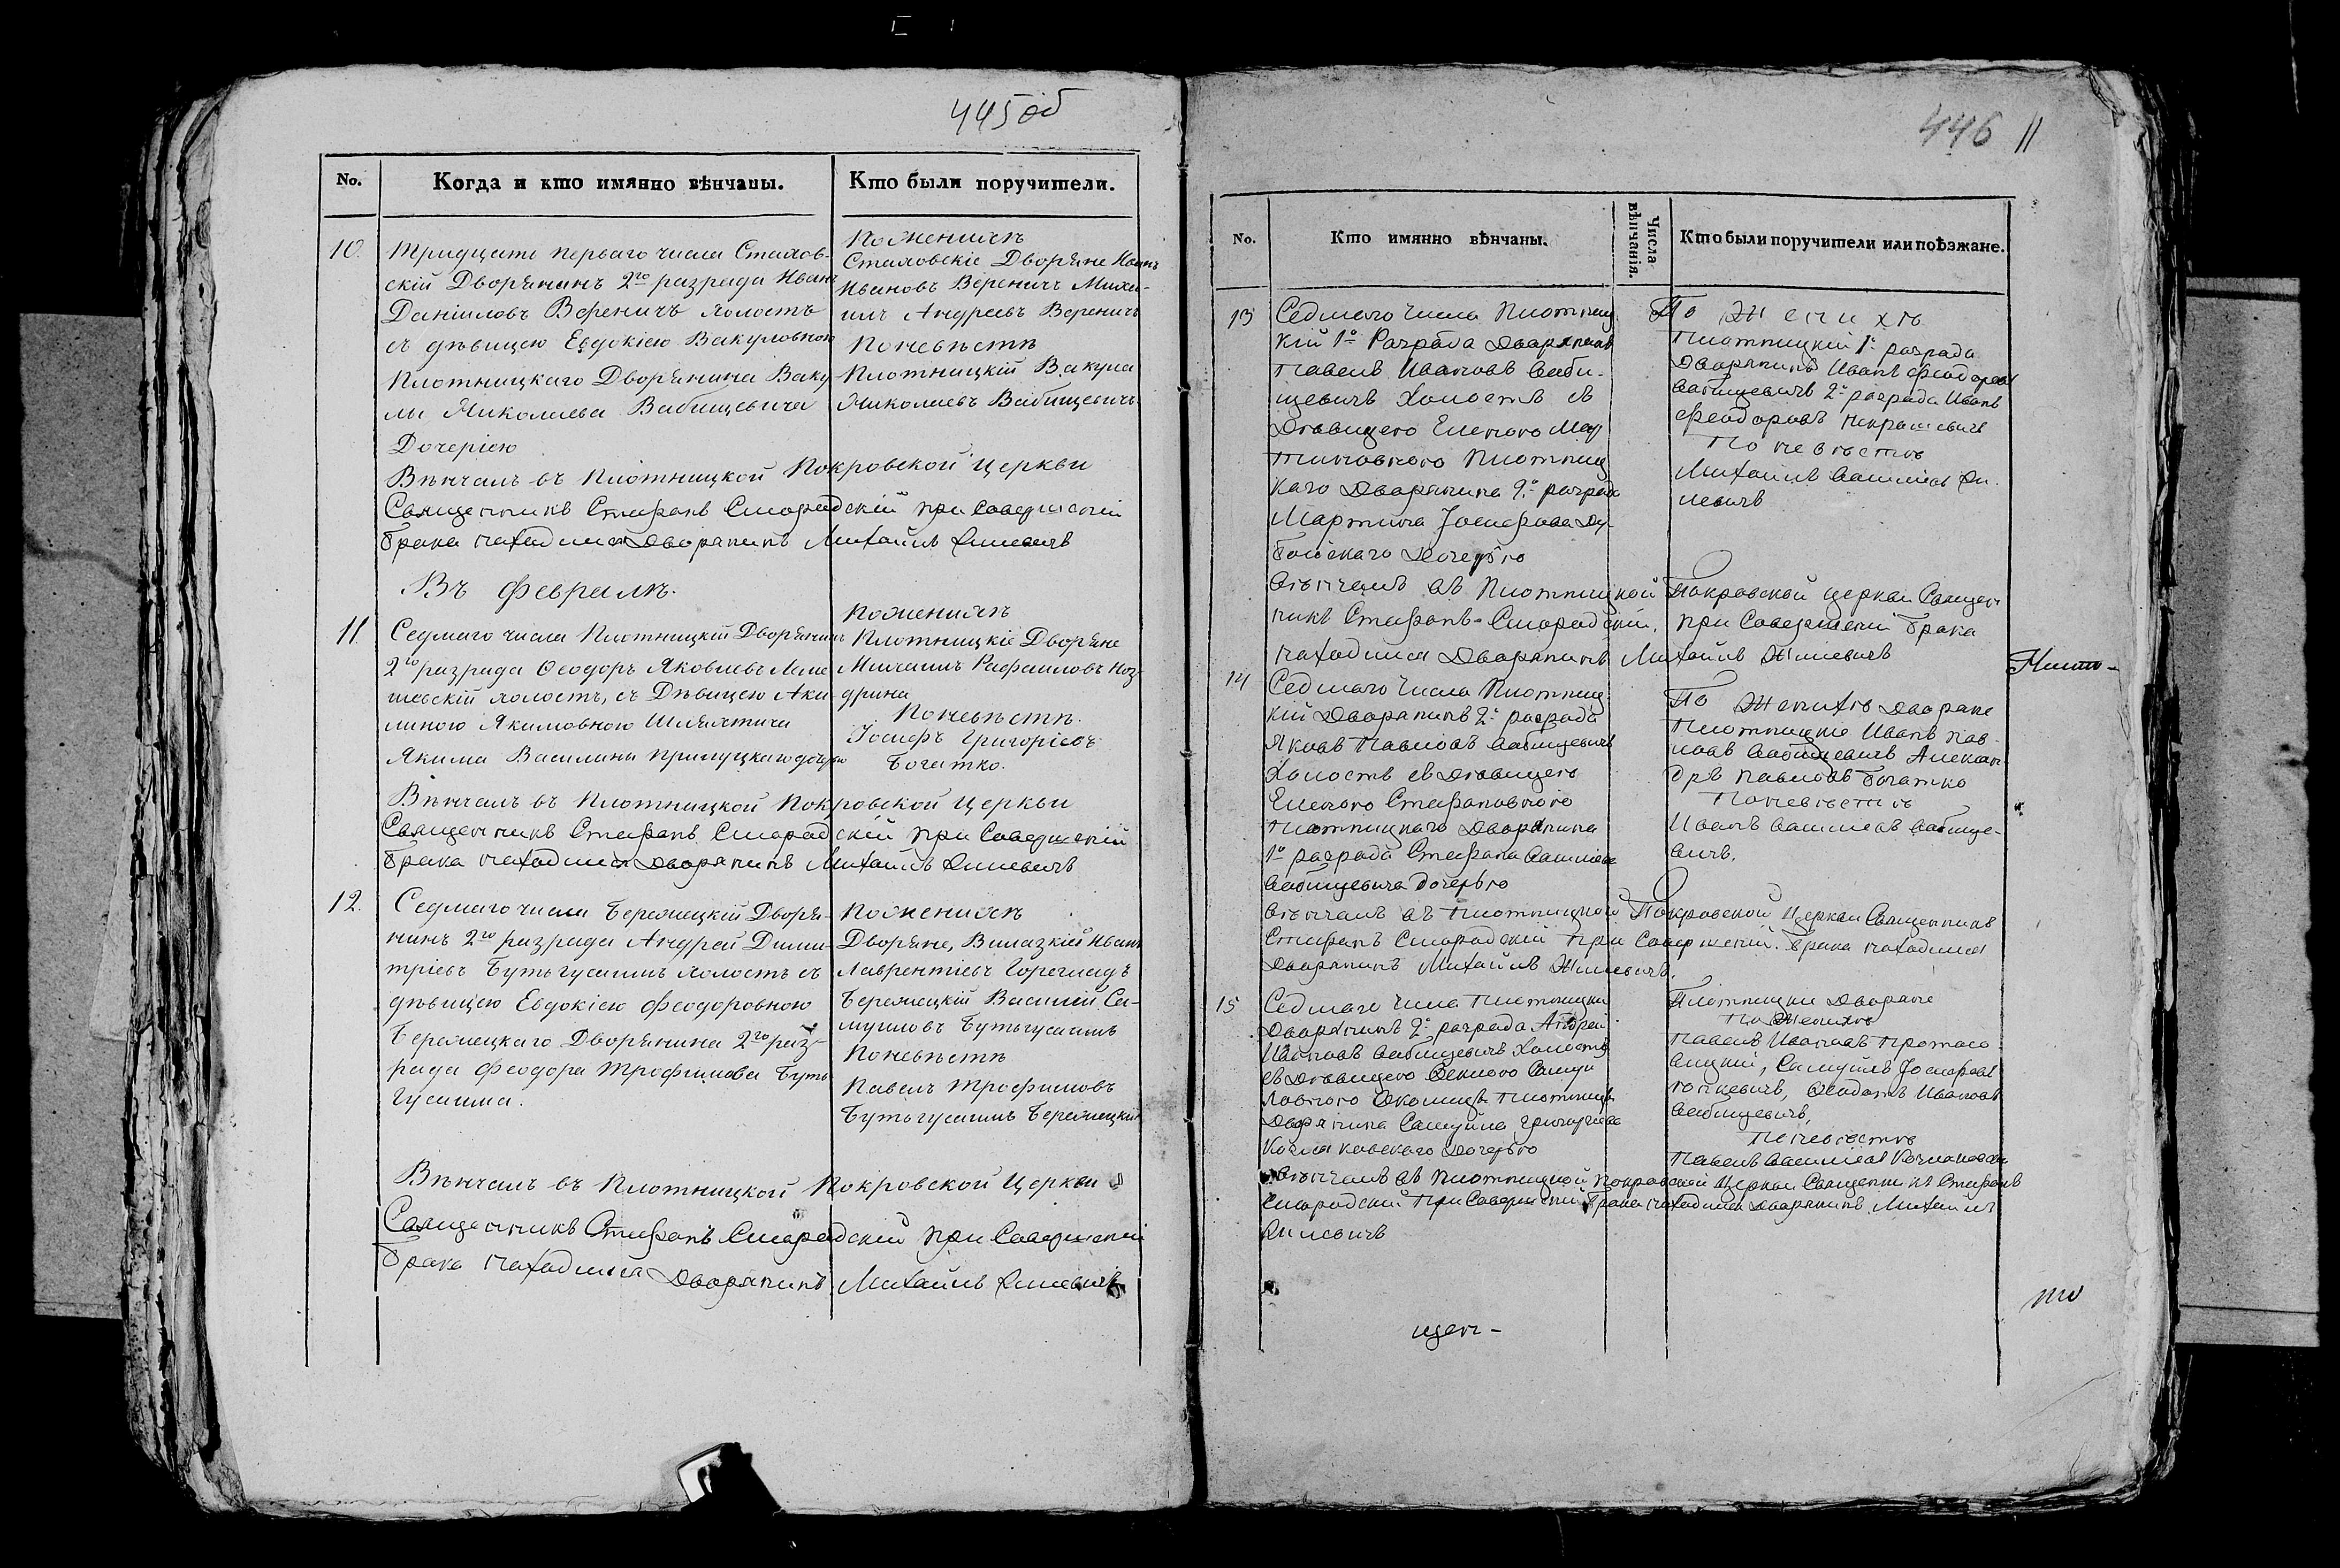 445 об
No.
Когда и кто имянно вѣнчаны.
Кто были поручители.
10.
Тридцать перваго числа Стахов-
скій Дворянинъ 2го разряда Иванъ
Даніиловъ Вереничъ холостъ
съ дѣвицею Евдокіею Вакуловною
Плотницкаго Дворянина Ваку-
лы Николаева Вабищевича
Дочерію
По женихѣ
Стаховскіе Дворяне Иванъ
Ивановъ Вереничъ Миха-
илъ Андреевъ Вереничъ
По невѣстѣ
Плотницкій Вакула
Николаевъ Вабищевичъ.
Вѣнчалъ въ Плотницкой Покровской Церкви
Священникъ Стефанъ Смородскій при Совершеніи
брака находился Дворянинъ Михаилъ
Въ Февралѣ.
11
Седмаго числа Плотницкій Дворянинъ
2го разряда Ѳеодоръ Яковлевъ
холостъ, съ Дѣвицею Аки-
линою Якимовною Шляхтича
Якима Василина
По женихѣ
Плотницкіе Дворяне
Михаилъ Рафаиловъ Коз-
дрина
По невѣстѣ.
Іосифъ Григоріевъ
Богатко.
Вѣнчалъ въ Плотницкой Покровской Церкви
Священникъ Стефанъ Смородскій при Совершеніи
брака находился Дворянинъ Михаилъ
12.
Седмаго числа Бережецкій Дворя-
нинъ 2го разряда Андрей Дими-
тріевъ Бутьгусаимъ холостъ съ
дѣвицею Евдокіею Феодоровною
Бережецкаго Дворянина 2го раз-
ряда Феодора Трофимова Буть-
гусаима.
По женихѣ
Дворяне, Вилазкій Иванъ
Лаврентіевъ Гореглядъ
Бережецкій Василій Са-
муиловъ Бутьгусаимъ
По невѣстѣ
Павелъ Трофимовъ
Бутьгусаимъ Бережецкій
Вѣнчалъ въ Плотницкой Покровской Церкви
Священникъ Стефанъ Смородскій при Совершеніи
брака находился Дворянинъ Михаилъ
446 11
No.
Кто имянно вѣнчаны.
Числа вѣнчанія.
Кто были поручители или поѣзжане.
13
Седмаго числа Плотниц
кій 1го Разряда Дворянинъ
Павелъ Ивановъ Ваби-
щевичъ Холостъ съ
Дѣвицею Еленою Мар
тиновною Плотниц
каго Дворянина 2го разряда
Мартина Іосифова Ду-
бойскаго Дочерью
По женихѣ
Плотницкій 1го разряда
Дворянинъ Иванъ Феодоровъ
Вабищевичъ 2го разряда Иванъ
Феодоровъ Некрашевичъ
По невѣстѣ
Михаилъ Василіевъ
Вѣнчалъ въ Плотницкой Покровской церкви Священ
никъ Стефанъ Смородскій, при Совершеніи брака
находился Дворянинъ Михаилъ Жилевичъ
14
Седмаго числа Плотниц
кій Дворянинъ 2го разряда
Яковъ Павловъ Вабищевичъ
Холостъ съ Дѣвицею
Еленою Стефановною
Плотницкаго Дворянина
1го разряда Стефана Василіева
Вабищевича дочерью
По женихѣ Дворяне
Плотницкіе Иванъ Пав-
ловъ Вабищевичъ Алексан-
дръ Павловъ Богатко
По невѣстѣ
Иванъ Василіевъ Вабище-
вичъ.
Вѣнчалъ въ Плотницкой Покровской Церкви Священникъ
Стефанъ Смородскій при Совершеніи брака находился
Дворянинъ Михаилъ Жилевичъ.
15
Седмаго числа Плотницкій
Дворянинъ 2го разряда Андрей
Ивановъ Вабищевичъ Холостъ
съ Дѣвицею Ѳеклою Самуи
ловною Плотницк
Дворянина Самуила Григоріева
Козляковскаго Дочерью
Плотницкіе Дворяне
По Женихѣ
Павелъ Ивановъ Протасо
вицкій, Самуилъ Іосифовъ
Ѳеодотъ Ивановъ
Вабищевичъ,
По невѣстѣ
Павелъ Василіевъ Козляковскій
Вѣнчалъ въ Плотницкой Покровской Церкви Священникъ Стефанъ
Смородскій при Совершеніи брака находился Дворянинъ Михаилъ
щен-